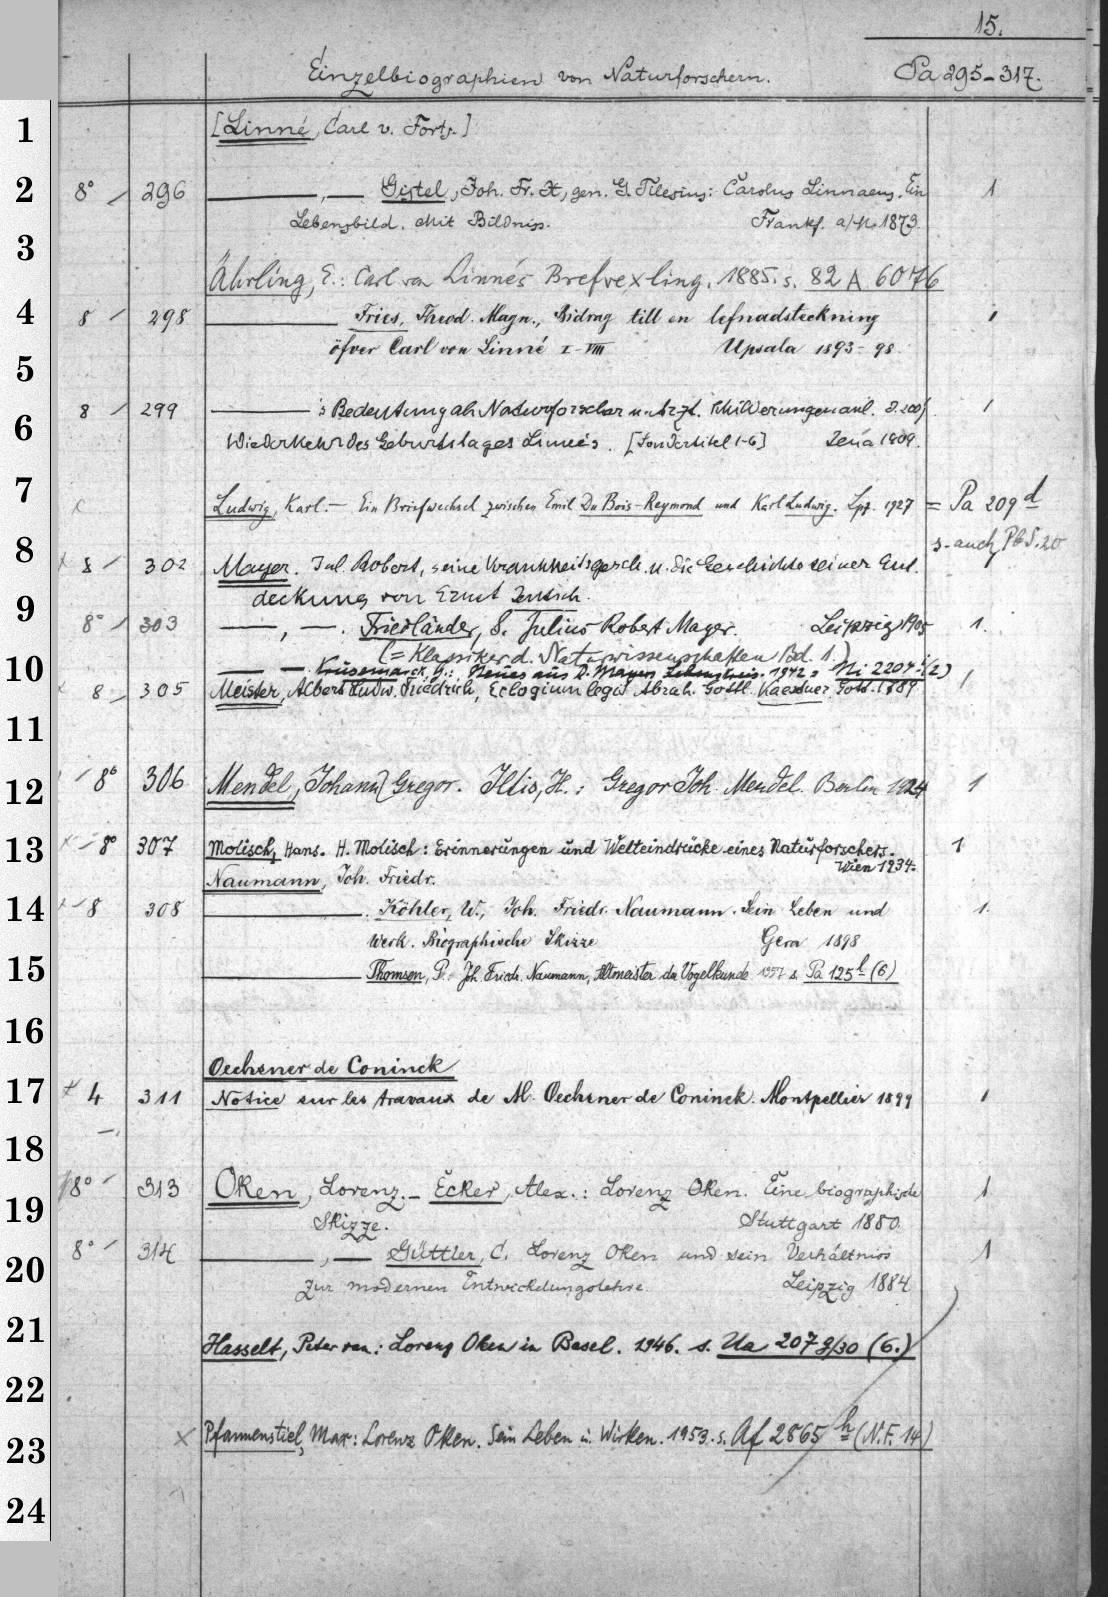 15.
Einzelbiographien von Naturforschern. Pa 295-317.
1
[Linné, Carl v. Forts.]
2 8° / 296 ———, — Gistel, Joh. Fr. X, gen. G. Tilesius: Carolus Linnaeus. Ein 1
Lebensbild. Mit Bildniss. Frankf. a/M. 1873.
3
Ährling, E.: Carl von Linnés Brefvexling. 1885. s. 82 A 6076
4 8 / 298 ——— Fries, Theod. Magn., Bidrag till en lefnadsteckning 1
öfver Carl von Linné I-VIII Upsala 1893-98.
5
8 / 299 ——— 's Bedeutung als Naturforscher u. Arzt. Schilderungen anl. d. 200j. 1
6 Wiederkehr des Geburtstages Linnés. [Sondertitel 1-6] Jena 1909.
7
Ludwig, Karl. — Ein Briefwechsel zwischen Emil Du Bois-Reymond und Karl Ludwig. Lpz. 1927 = Pa 209 d
8 s. auch Pb S. 20
x 8 / 302 Mayer. Jul. Robert, seine Krankheitsgesch. u. die Geschichte seiner Ent-
deckung von Ernst Jentsch.
9 8° / 303 ———, —. Friedländer, S. Julius Robert Mayer. Leipzig 1905 1.
(= Klassiker d. Naturwissenschaften Bd. 1.)
10 —— — Krusemarck, G.: Neues aus R. Mayers Lebenskreis. 1942 = Ni 2207 i (2)
x 8 / 305 Meister, Albert Ludw. Friedrich, Eclogium legit Abrah. Gottl. Kaestner Gott. 1789 1
11
12 / 8° 306 Mendel, Johann Gregor. Iltis, H.: Gregor Joh. Mendel. Berlin 1924 1
13 x - 8° 307 Molisch, Hans. H. Molisch: Erinnerungen und Welteindrücke eines Naturforschers. 1
Wien 1934.
Naumann, Joh. Friedr.
14 x - 8 308 ———. Köhler, W., Joh. Friedr. Naumann. Sein Leben und 1.
Werk. Biographische Skizze Gera 1898
15 ——— Thomsen, P.: Joh. Friedr. Naumann, Altmeister der Vogelkunde 1957 s. Pa 125 l (6)
16
Oechsner de Coninck
17 x 4 311 Notice sur les travaux de M. Oechsner de Coninck. Montpellier 1899 1
18
8° / 313 Oken, Lorenz. — Ecker, Alex.: Lorenz Oken. Eine biographische 1
19 Skizze. Stuttgart 1880.
8° / 314 ———, — Güttler, C. Lorenz Oken und sein Verhältnis 1
20 zur modernen Entwickelungslehre. Leipzig 1884
21 Hasselt, Peter van: Lorenz Oken in Basel. 1946. s. Ua 207 g/30 (6.)
22
23 x Pfannenstiel, Max: Lorenz Oken. Sein Leben u. Wirken. 1953. s. Af 2865 h (N.F. 14)
24